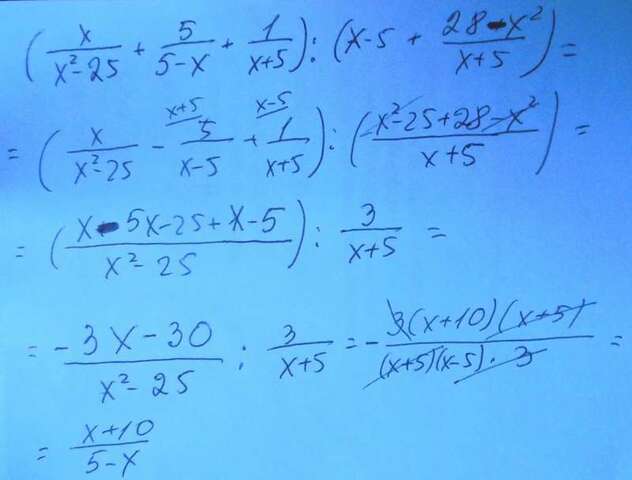 (x/(x²-25) + 5/(5-x) + 1/(x+5)) : (x-5 + (28-x²)/(x+5)) =
= (x/(x²-25) - 5/(x-5) ^(x+5) + 1/(x+5) ^(x-5)) : ((x²-25+28-x²)/(x+5)) =
= ((x-5x-25+x-5)/(x²-25)) : 3/(x+5) =
= (-3x-30)/(x²-25) : 3/(x+5) = -(3(x+10)(x+5))/((x+5)(x-5)·3) =
= (x+10)/(5-x)